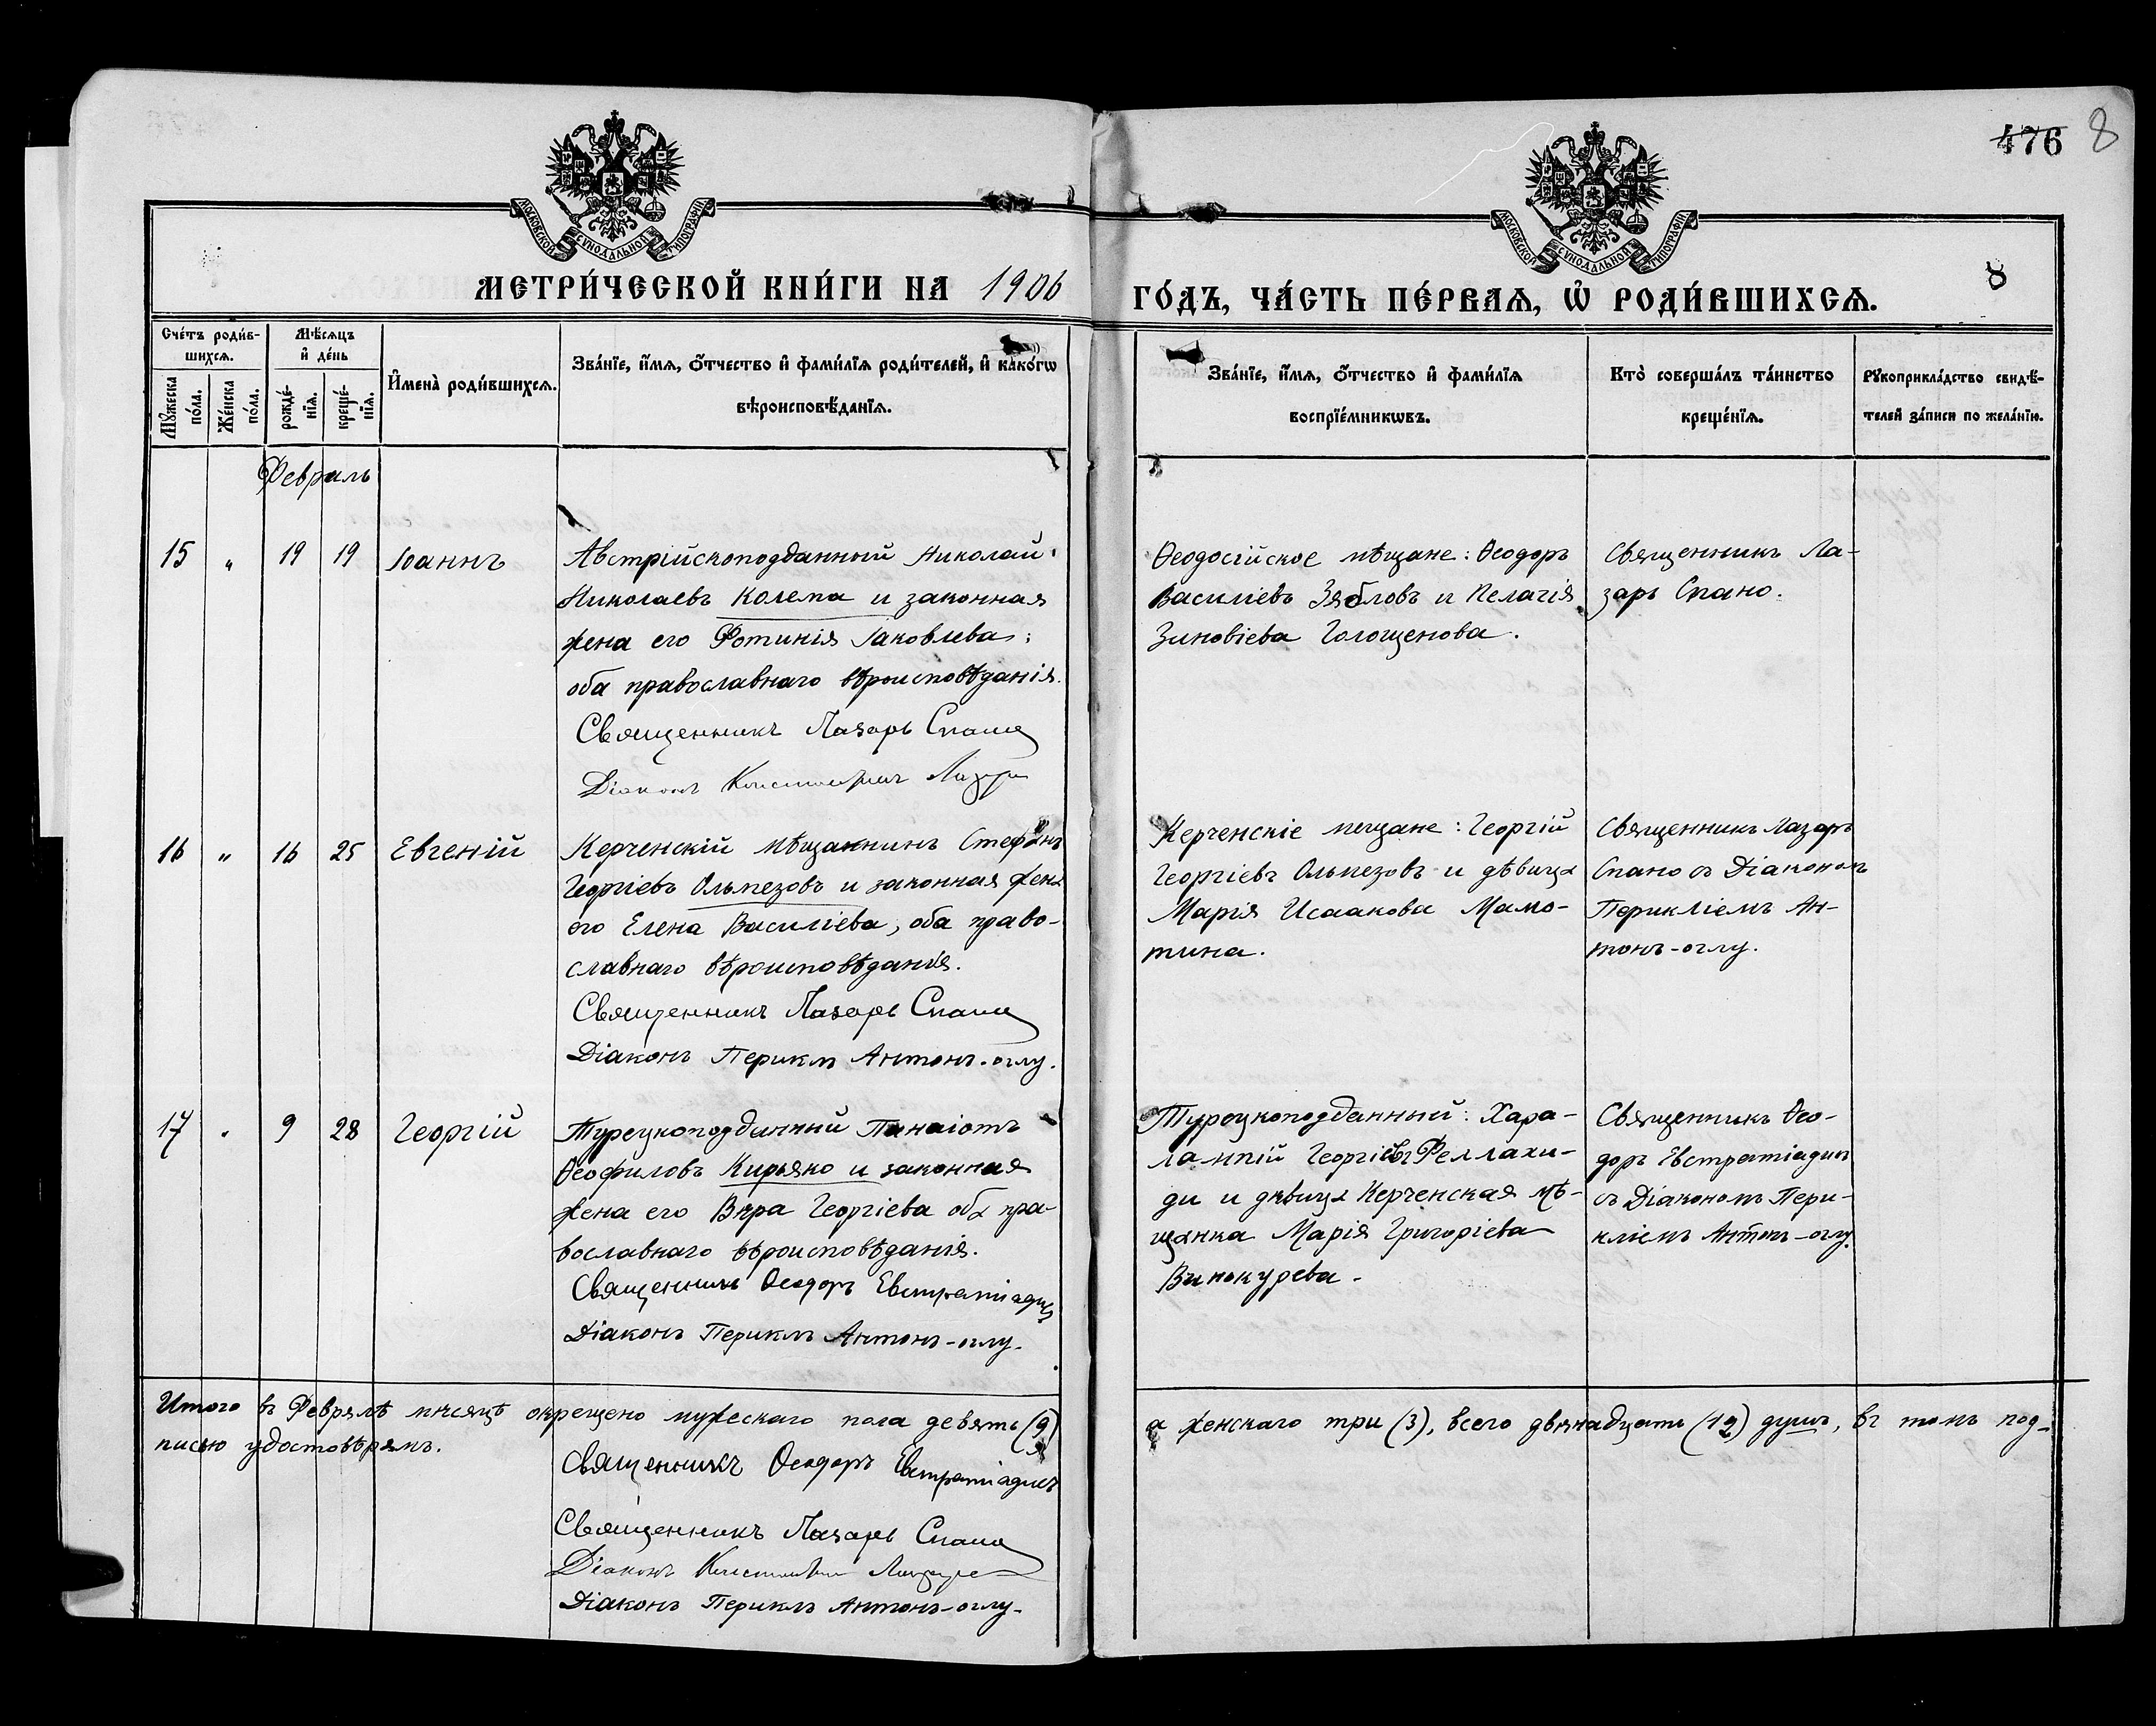 476 8
МОСКОВСКОЙ СѴНОДАЛЬНОЙ ТИПОГРАФІИ
МОСКОВСКОЙ СѴНОДАЛЬНОЙ ТИПОГРАФІИ
МЕТРИ́ЧЕСКОЙ КНИ́ГИ НА 1906
ГО́ДЪ, ЧА́СТЬ ПЕ́РВАѦ, Ѡ҆ РОДИ́ВШИХСѦ. 8
Сче́тъ роди́в-
шихсѧ.
Мѣ́сѧцъ
и҆ де́нь
Мꙋ́жеска
по́ла.
Же́нска
по́ла.
рожде́-
нїѧ.
креще́-
нїѧ.
И҆мена̀ роди́вшихсѧ.
Зва́нїе, и҆́мѧ, ѻ҆́тчество и҆ фами́лїѧ роди́телей, и҆ како́гѡ
вѣроисповѣ́данїѧ.
Зва́нїе, и҆́мѧ, ѻ҆́тчество и҆ фами́лїѧ
воспрїе́мникѡвъ.
Кто̀ соверша́лъ та́инство
креще́нїѧ.
Рꙋкоприкла́дство свидѣ́-
телей за́писи по жела́нїю.
Февраль
15 " 19 19 Іоаннъ
Австрійскоподданный Николай
Николаевъ Колема и законная
жена его Фотинія Іаковлева;
оба православнаго вѣроисповѣданія.
Священникъ Лазарь Спано
Діаконъ Константинъ
Ѳеодосійское мѣщане: Ѳеодоръ
Василіевъ Зябловъ и Пелагія
Зиновіева Голощенова.
Священникъ Ла-
заръ Спано.
16 " 16 25 Евгеній
Керченскій мѣщанинъ Стефанъ
Георгіевъ Ольмезовъ и законная жена
его Елена Василіева, оба право-
славнаго вѣроисповѣданія.
Священникъ Лазарь Спано
Діаконъ Периклъ Антонъ-оглу.
Керченскіе мещане: Георгій
Георгіевъ Ольмезовъ и дѣвица
Марія Исаакова Мамо-
тина.
Священникъ Лазаръ
Спано съ Діакономъ
Перикліемъ Ан-
тонъ-оглу.
17 " 9 28 Георгій
Турецкоподданный Панаіотъ
Ѳеофиловъ Кирьяко и законная
жена его Вѣра Георгіева оба пра-
вославнаго вѣроисповѣданія.
Священникъ Ѳеодоръ Евстратіадисъ
Діаконъ Периклъ Антонъ-оглу.
Турецкоподданный: Хара-
лампій Георгіевъ Феллахи-
ди и дѣвица Керченская мѣ-
щанка Марія Григоріева
Винокурева.
Священникъ Ѳео-
доръ Евстратіадисъ
съ Діакономъ Пери-
кліемъ Антонъ-оглу.
Итого въ Февралѣ мѣсяцѣ окрещено мужескаго пола девять (9)
а женскаго три (3), всего двѣнадцать (12) душъ, въ томъ под-
писью удостовѣряемъ.
Священникъ Ѳеодоръ Евстратіадисъ
Священникъ Лазарь Спано
Діаконъ Константинъ
Діаконъ Периклъ Антонъ-оглу.